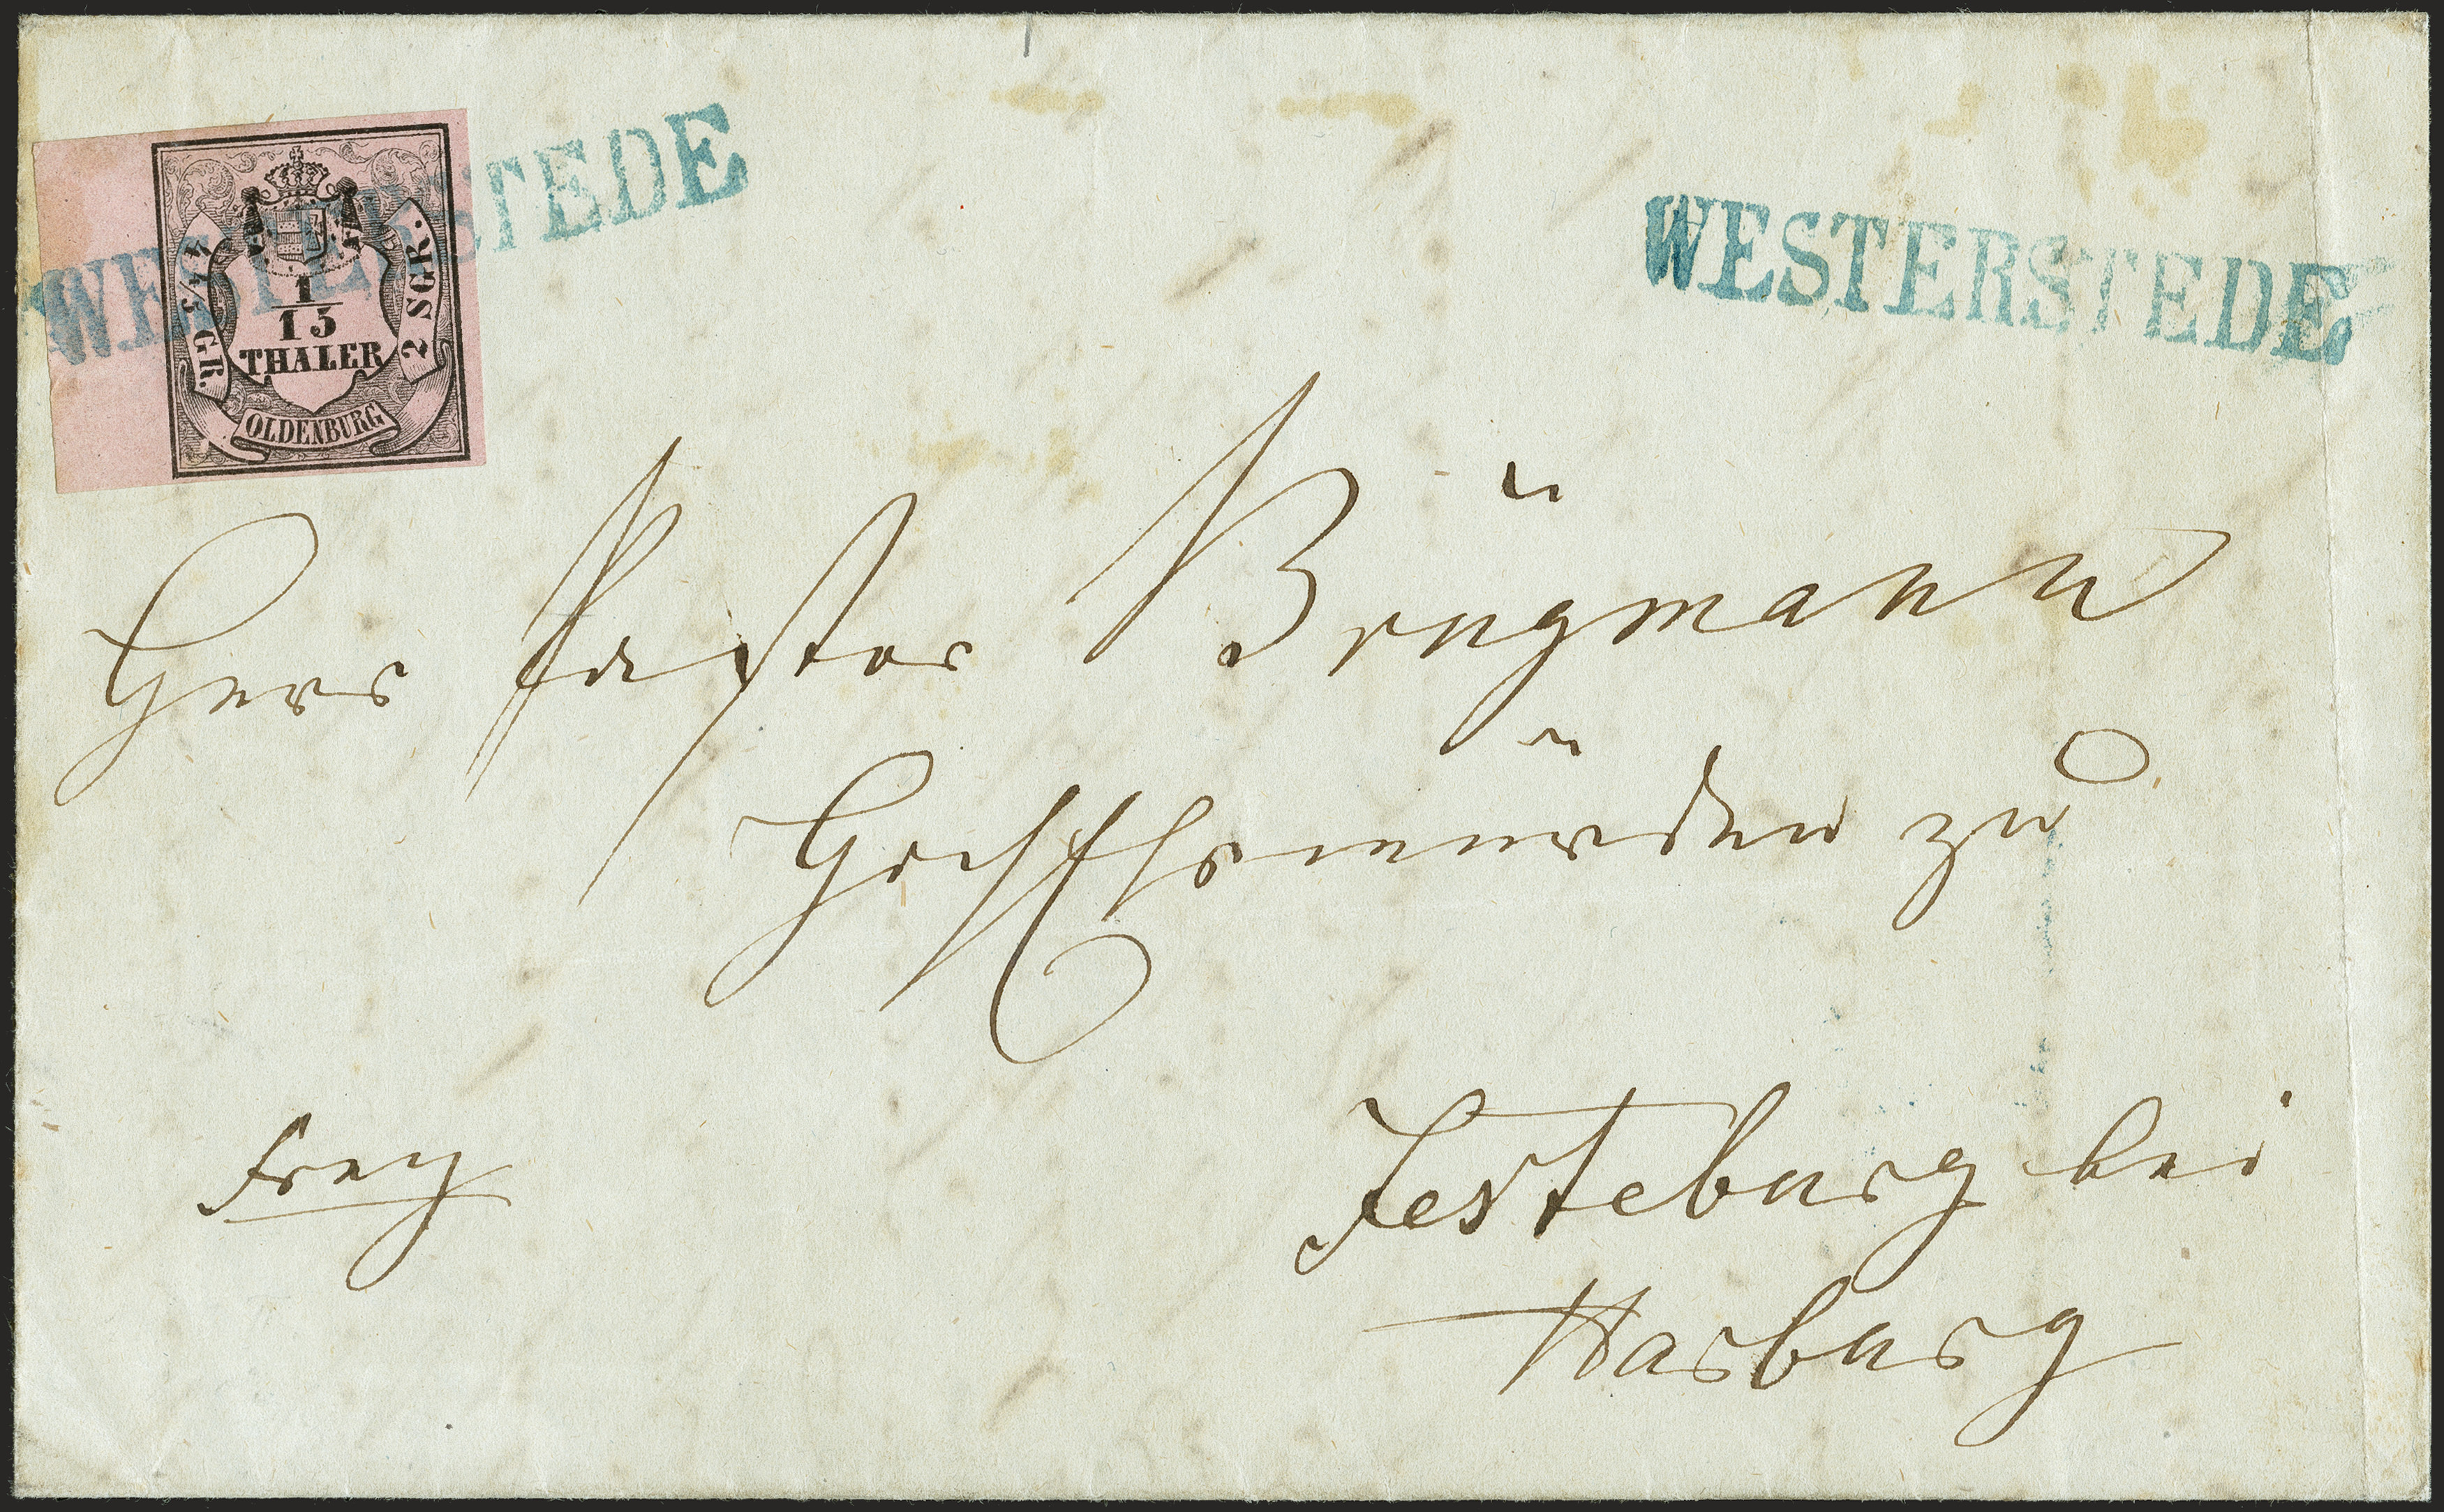 WESTERSTEDE
WESTERSTEDE
4 4/5 GR.
1/15
THALER
2 SGR.
OLDENBURG
Herr Pastor Brügmann
Hochehrwürden zu
Frey
Jesteburg bei
Harburg